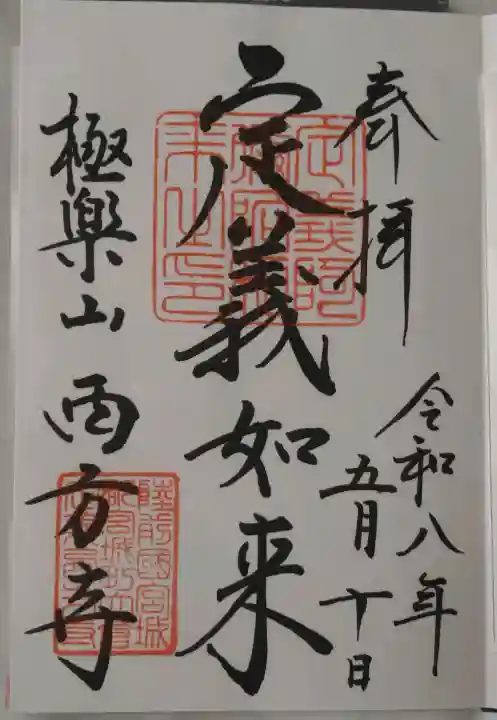 奉拝
令和八年
五月十日
定義如来
極楽山西方寺